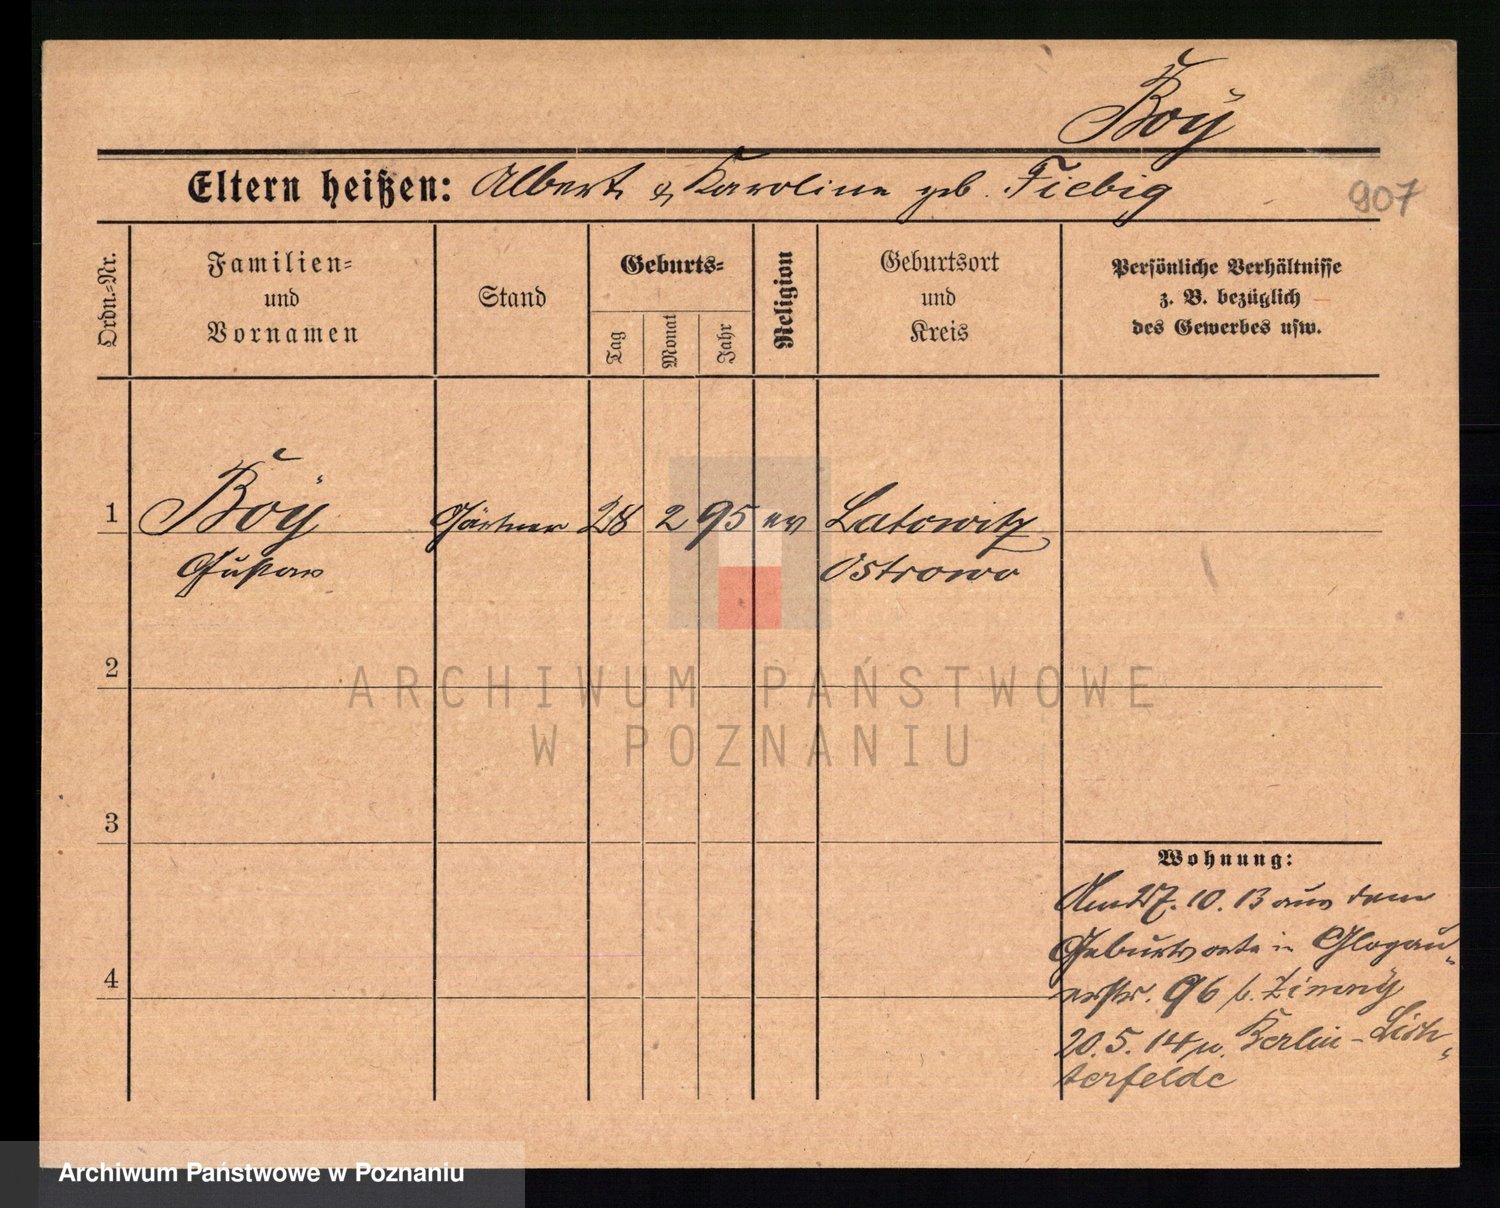 Boÿ
Eltern heißen: Albert & Karoline geb. Fiebig
907
Ordn.=Nr.
Familien=
und
Vornamen
Stand
Geburts=
Tag
Monat
Jahr
Religion
Geburtsort
und
Kreis
Persönliche Verhältnisse
z. B. bezüglich
des Gewerbes usw.
1 Boÿ Gärtner 28 2 95 ev Latowitz
Gustav Ostrowo
2
ARCHIWUM PAŃSTWOWE
W POZNANIU
3
Wohnung:
Am 27. 10. 13 aus dem
Geburtsorte in Glogau-
4
erstr. 96 b. Zimny
20. 5. 14 n. Berlin-Lich-
terfelde
Archiwum Państwowe w Poznaniu